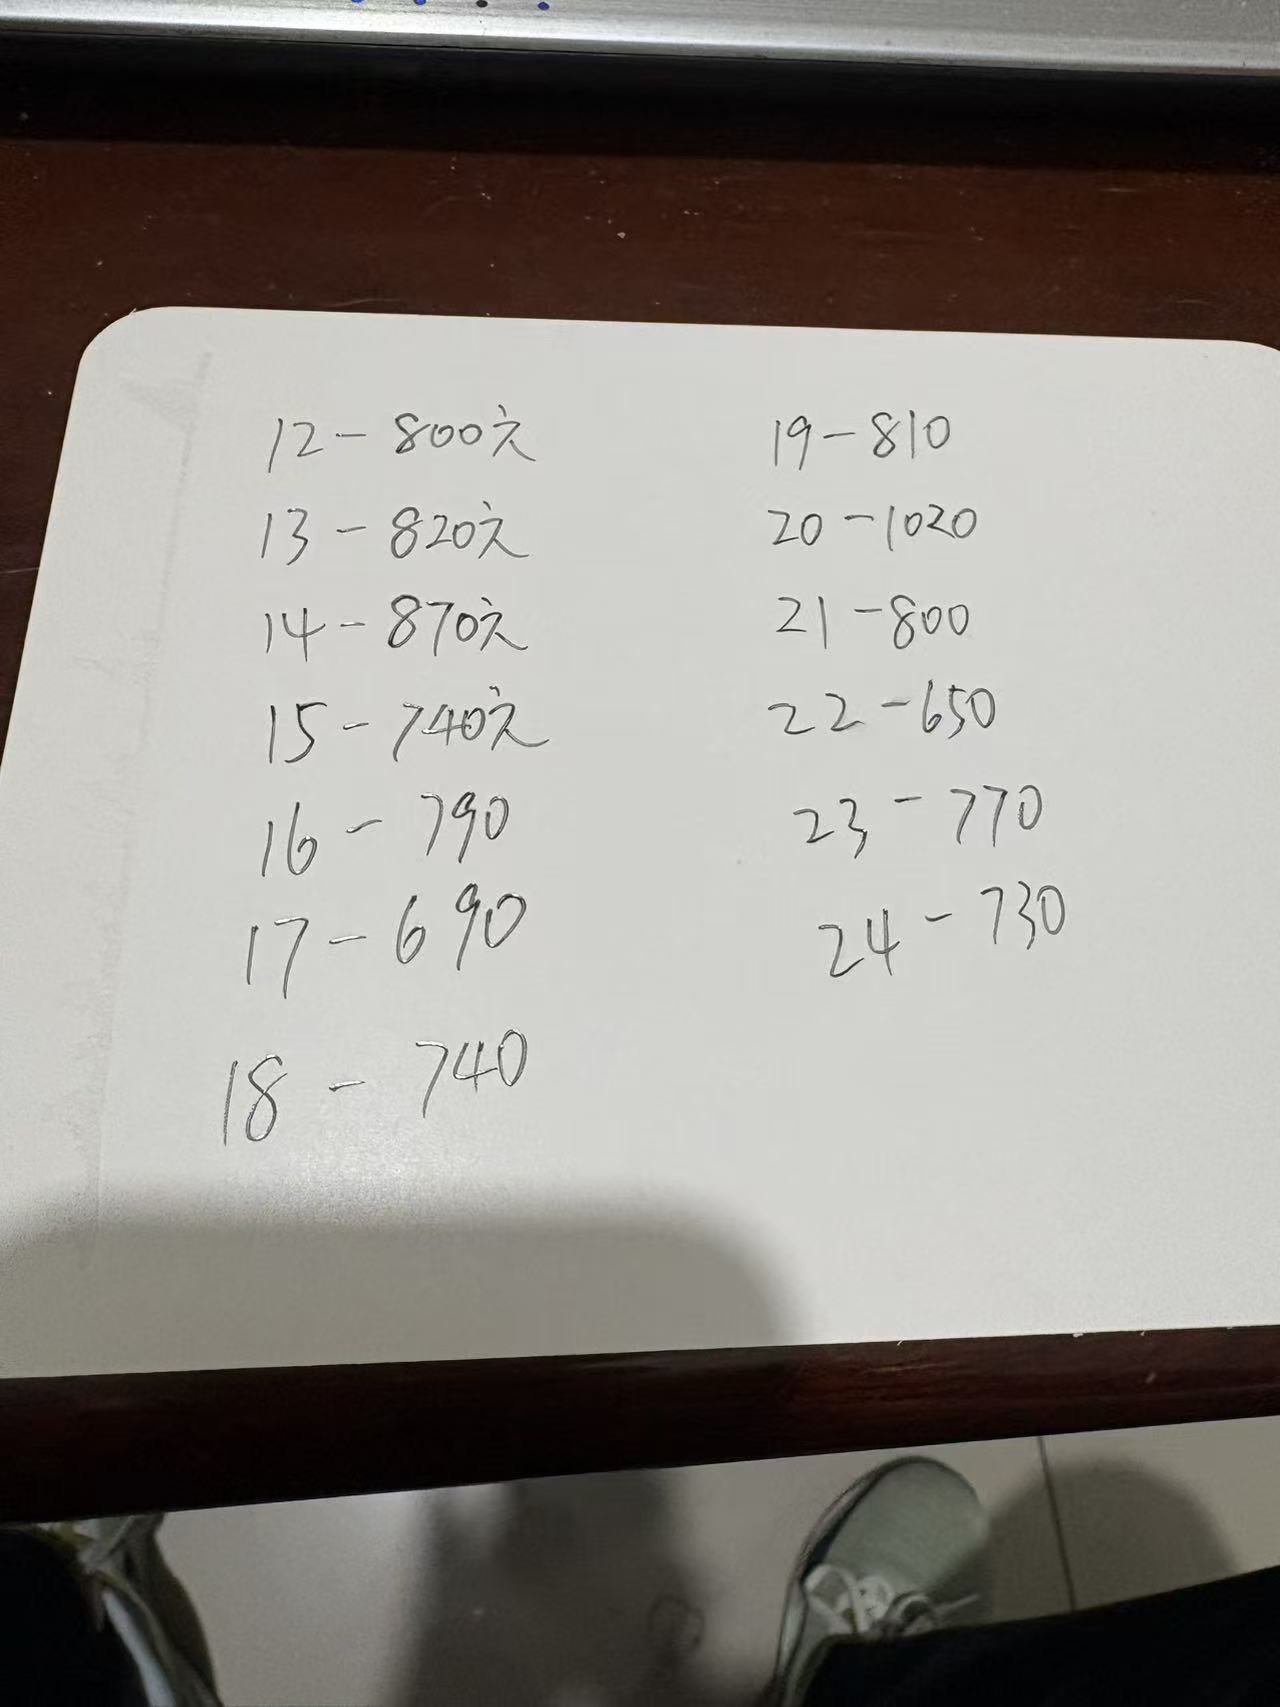 12-800元
13-820元
14-870元
15-740元
16-790
17-690
18-740
19-810
20-1020
21-800
22-650
23-770
24-730